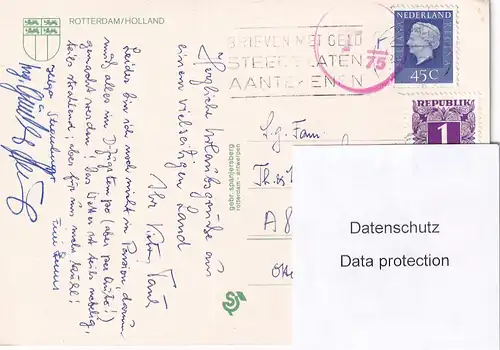 ROTTERDAM/HOLLAND
BRIEVEN MET GELD
STEEDS LATEN
AANTEKENEN
75
NEDERLAND
45C
REPUBLIK
1
Herzliche Urlaubsgrüße aus
einem vielseitigen Land
Ihr Viktor
Leider bin ich noch nicht in Pension, darum
muß alles im D-Zugtempo (aber per Auto!)
gemacht werden! Das Wetter ist teils neblig,
teils strahlend, aber für uns mehr kühl!
Helga
gebr. spanjersberg
rotterdam - antwerpen
S.g. Fam.
A 8
Datenschutz
Data protection